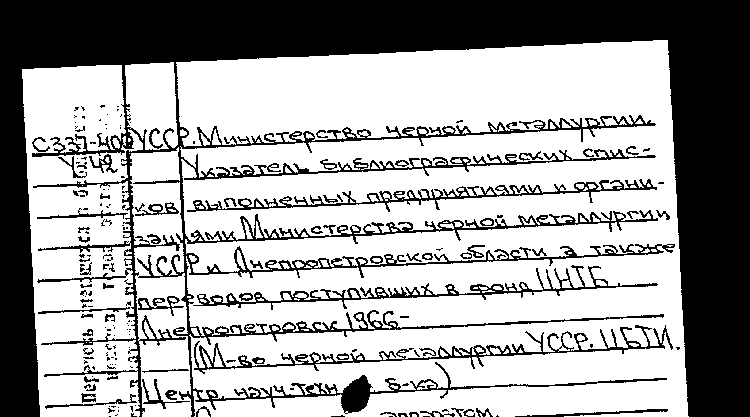 С337-400 УССР. Министерство черной металлургии.
У-49 Указатель библиографических спис-
ков, выполненных предприятиями и органи-
зациями Министерства черной металлургии
УССР и Днепропетровской области, а также
переводов, поступивших в фонд ЦНТБ.
Днепропетровск, 1966-
(М-во черной металлургии УССР. ЦБТИ.
Центр. науч.-техн. б-ка)
аппаратом.
Перечень имеющихся в библиотеке